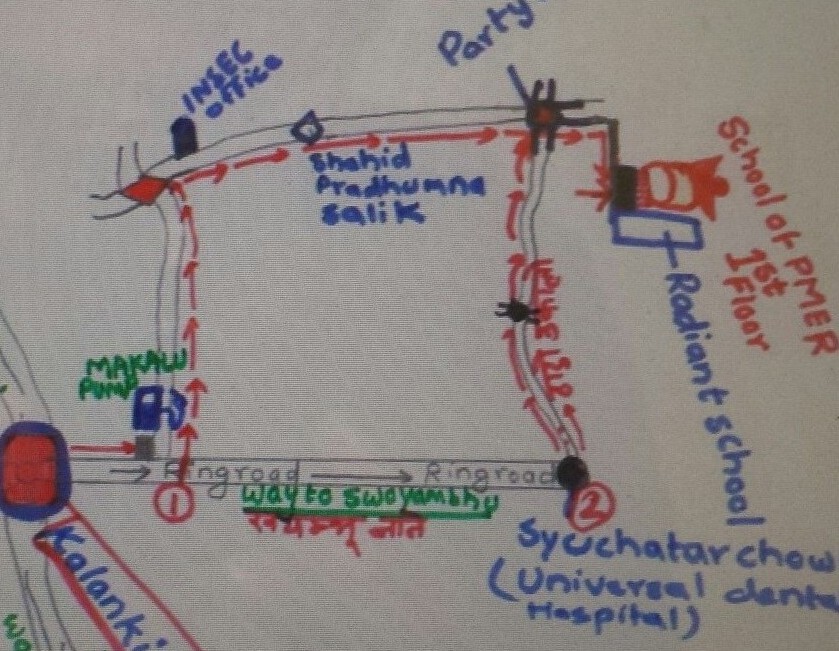 INSEC
office
Party
Shahid
Pradhumna
Salik
School of PMER
1st
Floor
Radiant school
MAKALU
PUMP
Ringroad
Ringroad
1
way to swoyambhu
2
Syuchatar chow
(Universal denta
Hospital)
Kalanki